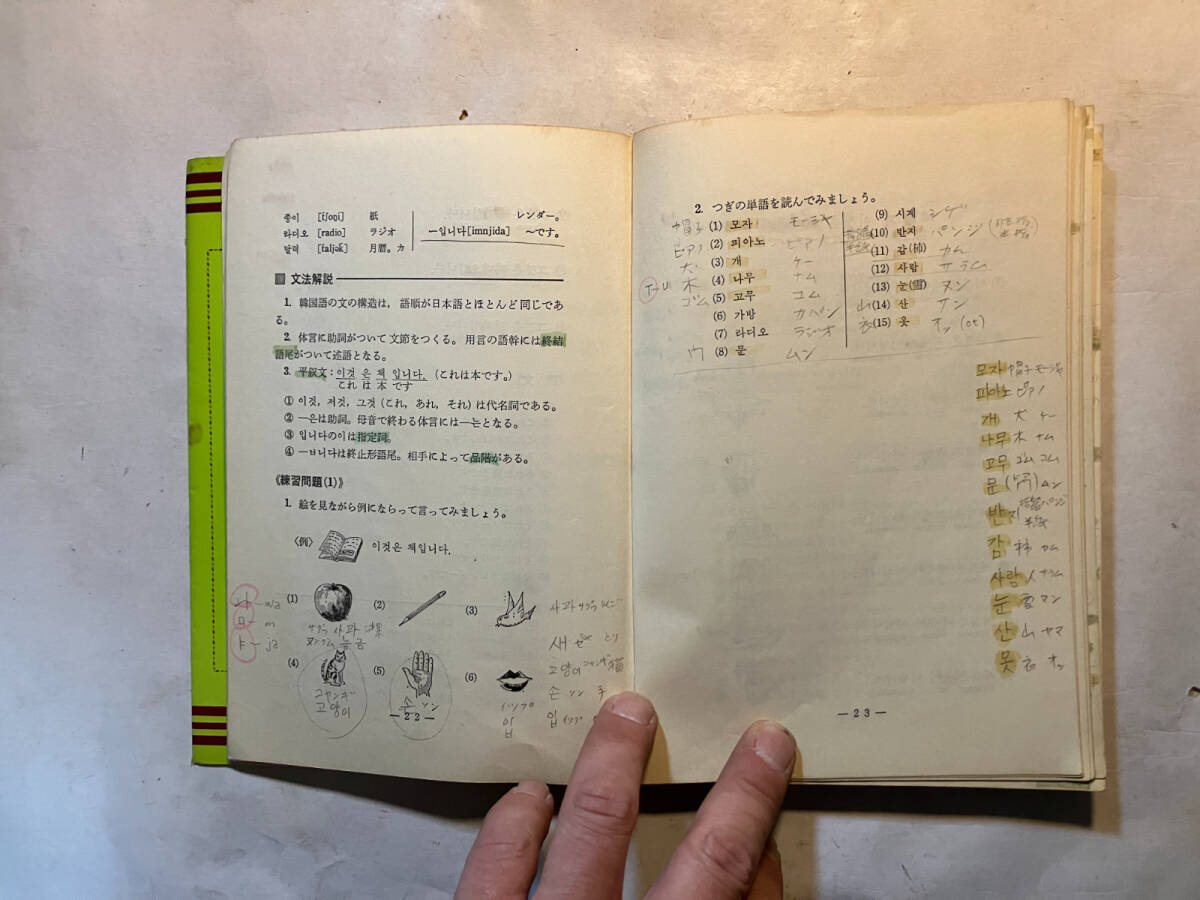 종이 [tʃoŋi] 紙
라디오 [radio] ラジオ
달력 [taljək] 月暦。カ
レンダー。
―입니다[imnjida] ～です。
文法解説
1. 韓国語の文の構造は，語順が日本語とほとんど同じであ
る。
2. 体言に助詞がついて文節をつくる。用言の語幹には終結
語尾がついて述語となる。
3. 平叙文：이것 은 책 입니다.（これは本です。）
これ は 本 です
① 이것, 저것, 그것（これ，あれ，それ）は代名詞である。
② ―은は助詞。母音で終わる体言には―는となる。
③ 입니다の이は指定詞。
④ ―ㅂ니다は終止形語尾。相手によって品階がある。
《練習問題(1)》
1. 絵を見ながら例にならって言ってみましょう。
〈例〉 이것은 책입니다.
ㅘ ― wa
ㅁ ― m
ㅑ ― ja
(1) (2) (3)
사과 サグァ
사과
능금
새 とり
고양이 猫
손 ソン 手
입 イプ
(4) (5) (6)
고양이
손 ソン
입
―22―
2. つぎの単語を読んでみましょう。
帽子 (1) 모자 モーヂャ
ピアノ (2) 피아노 ピアノ
犬 (3) 개 ケー
木 (4) 나무 ナム
ゴム (5) 고무 コム
(6) 가방 カバン
(7) 라디오 ラジオ
(8) 문 ムン
(9) 시계 シゲ
(10) 반지 パンジ
(11) 감(柿) カム
(12) 사람 サラム
(13) 눈(雪) ヌン
山 (14) 산 サン
衣 (15) 옷 オッ (ot)
모자 帽子 モーヂャ
피아노 ピアノ
개 犬 ケー
나무 木 ナム
고무 ゴム コム
문 ムン
반지 パンジ
감 柿 カム
사람 人 サラム
눈 雪 ヌン
산 山 ヤマ
옷 衣 オッ
―23―